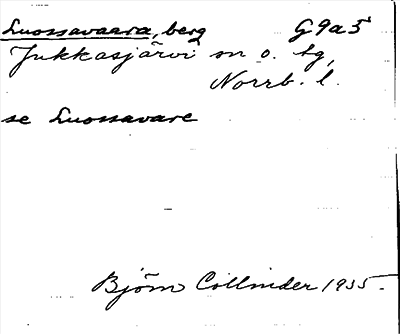 Luossavaara, berg G9a5
Jukkasjärvi sn o. tg,
Norrb. l.
se Luossavare
Björn Collinder 1935.